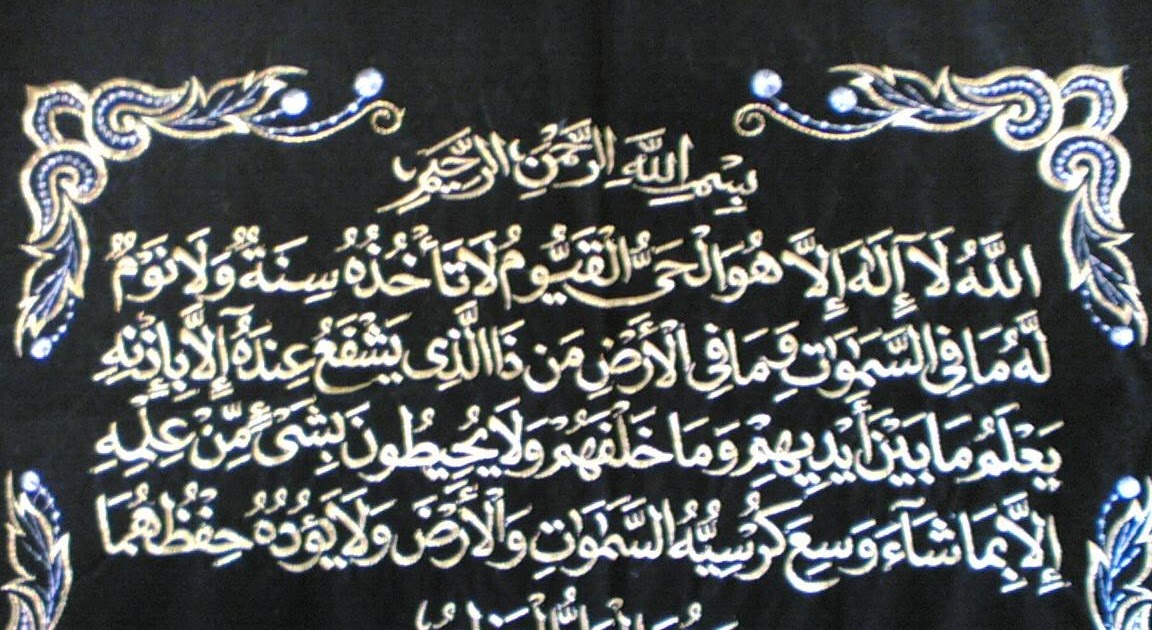 بِسْمِ اللَّهِ الرَّحْمَنِ الرَّحِيمِ
اللَّهُ لَا إِلَٰهَ إِلَّا هُوَ الْحَيُّ الْقَيُّومُ لَا تَأْخُذُهُ سِنَةٌ وَلَا نَوْمٌ
لَّهُ مَا فِي السَّمَوَٰتِ وَمَا فِي الْأَرْضِ مَن ذَا الَّذِي يَشْفَعُ عِندَهُٓ إِلَّا بِإِذْنِهِ
يَعْلَمُ مَا بَيْنَ أَيْدِيهِمْ وَمَا خَلْفَهُمْ وَلَا يُحِيطُونَ بِشَىْءٍ مِّنْ عِلْمِهِ
إِلَّا بِمَا شَآءَ وَسِعَ كُرْسِيُّهُ السَّمَوَٰتِ وَالْأَرْضَ وَلَا يَؤُدُهُ حِفْظُهُمَا